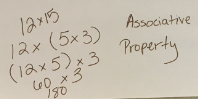 12x15
12 x (5x3)
(12x5) x 3
60 x 3
180
Associative
Property